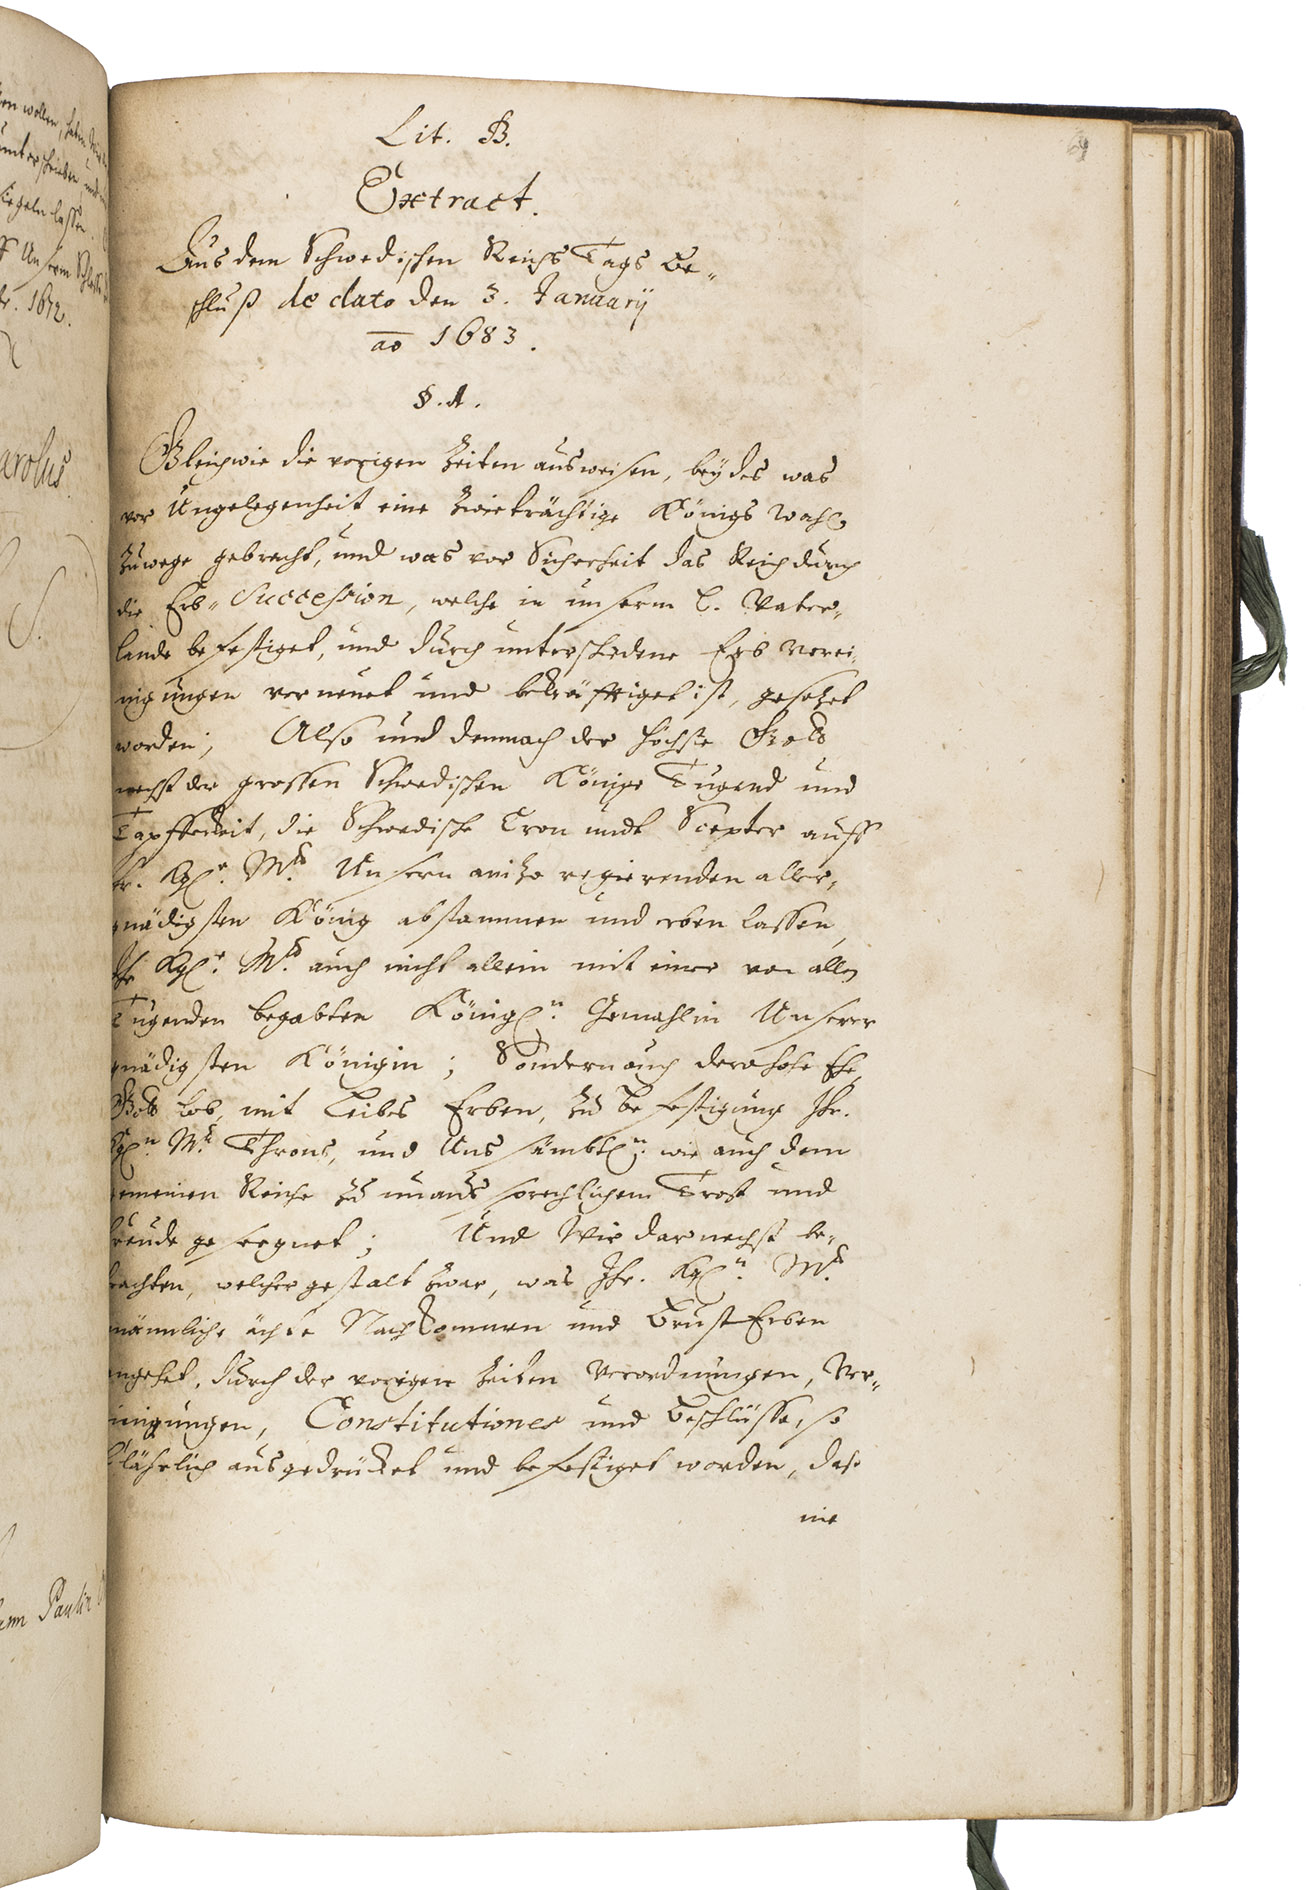 69
Lit. B.
Extract.
Aus dem Schwedischen Reichs Tags Be-
schluß de dato den 3. Januarij
ao 1683.
§. 1.
Gleichwie die vorigen Zeiten ausweisen, beydes was
vor Ungelegenheit eine zwieträchtige Königs Wahl
zuwege gebracht, und was vor Sicherheit das Reich durch
die Erb-Succession, welche in unserm l. Vater-
lande befestiget, und durch unterschiedene Erb Verei-
nigungen verneuet und bekräfftiget ist, gesetzet
worden; Also und demnach der höchste Gott
nechst der grossen Schwedischen Könige Tugend und
Tapfferkeit, die Schwedische Cron undt Scepter auff
Kgl. Mtt. Unsern anitzo regierenden aller-
gnädigsten König abstammen und erben lassen,
Kgl. Mtt. auch nicht allein mit einer von allen
Tugenden begabten Königl. Gemahlin Unserer
gnädigsten Königin; Sondern auch dero hohe Ehe,
Gott Lob, mit Leibes Erben, zu befestigung Ihr.
Kgln. Mtt. Throns, und Uns sämbtln. wie auch dem
gemeinen Reiche zu unaussprechlichem Trost und
freude gesegnet; Und Wir darnechst be-
trachten, welchergestalt zwar, was Ihr. Kgln. Mtt.
männliche ächte Nachkommen und BrustErben
angehet, durch der vorigen Zeiten Verordnungen, Ver-
einigungen, Constitutiones und Beschlüsse, so
klährlich ausgedrücket und befestiget worden, daß
nie
wollen,
unterschrieben
siegeln lassen
Unserm Schloße
1672.
arolus
S.
Paulin